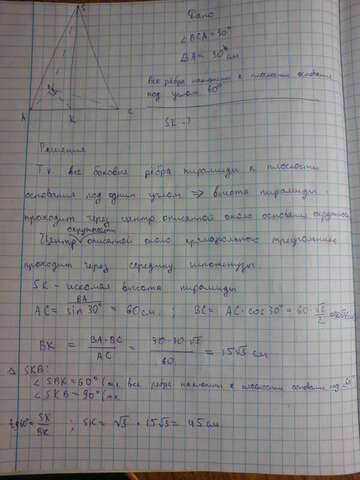 S
A
K
C
Дано
∠BCA = 30°
BA = 30 см
все ребра наклонены к плоскости основания
под углом 60°
SK - ?
Решение
Т.к. все боковые ребра пирамиды к плоскости
основания под одним углом ⇒ высота пирамиды
проходит через центр описанной около основания окружности
окружности
Центр описанной около прямоугольного треугольника
проходит через середину гипотенузы.
SK - искомая высота пирамиды
AC = BA / sin 30° = 60 см ; BC = AC · cos 30° = 60 · √3/2
BK = BA · BC / AC = = 15√3 см
Δ SKB:
∠ SBK = 60° (т.к. все ребра наклонены к плоскости основания под 60°
∠ SKB = 90° (т.к.
tg 60° = SK / BK ; SK = √3 · 15√3 = 45 см